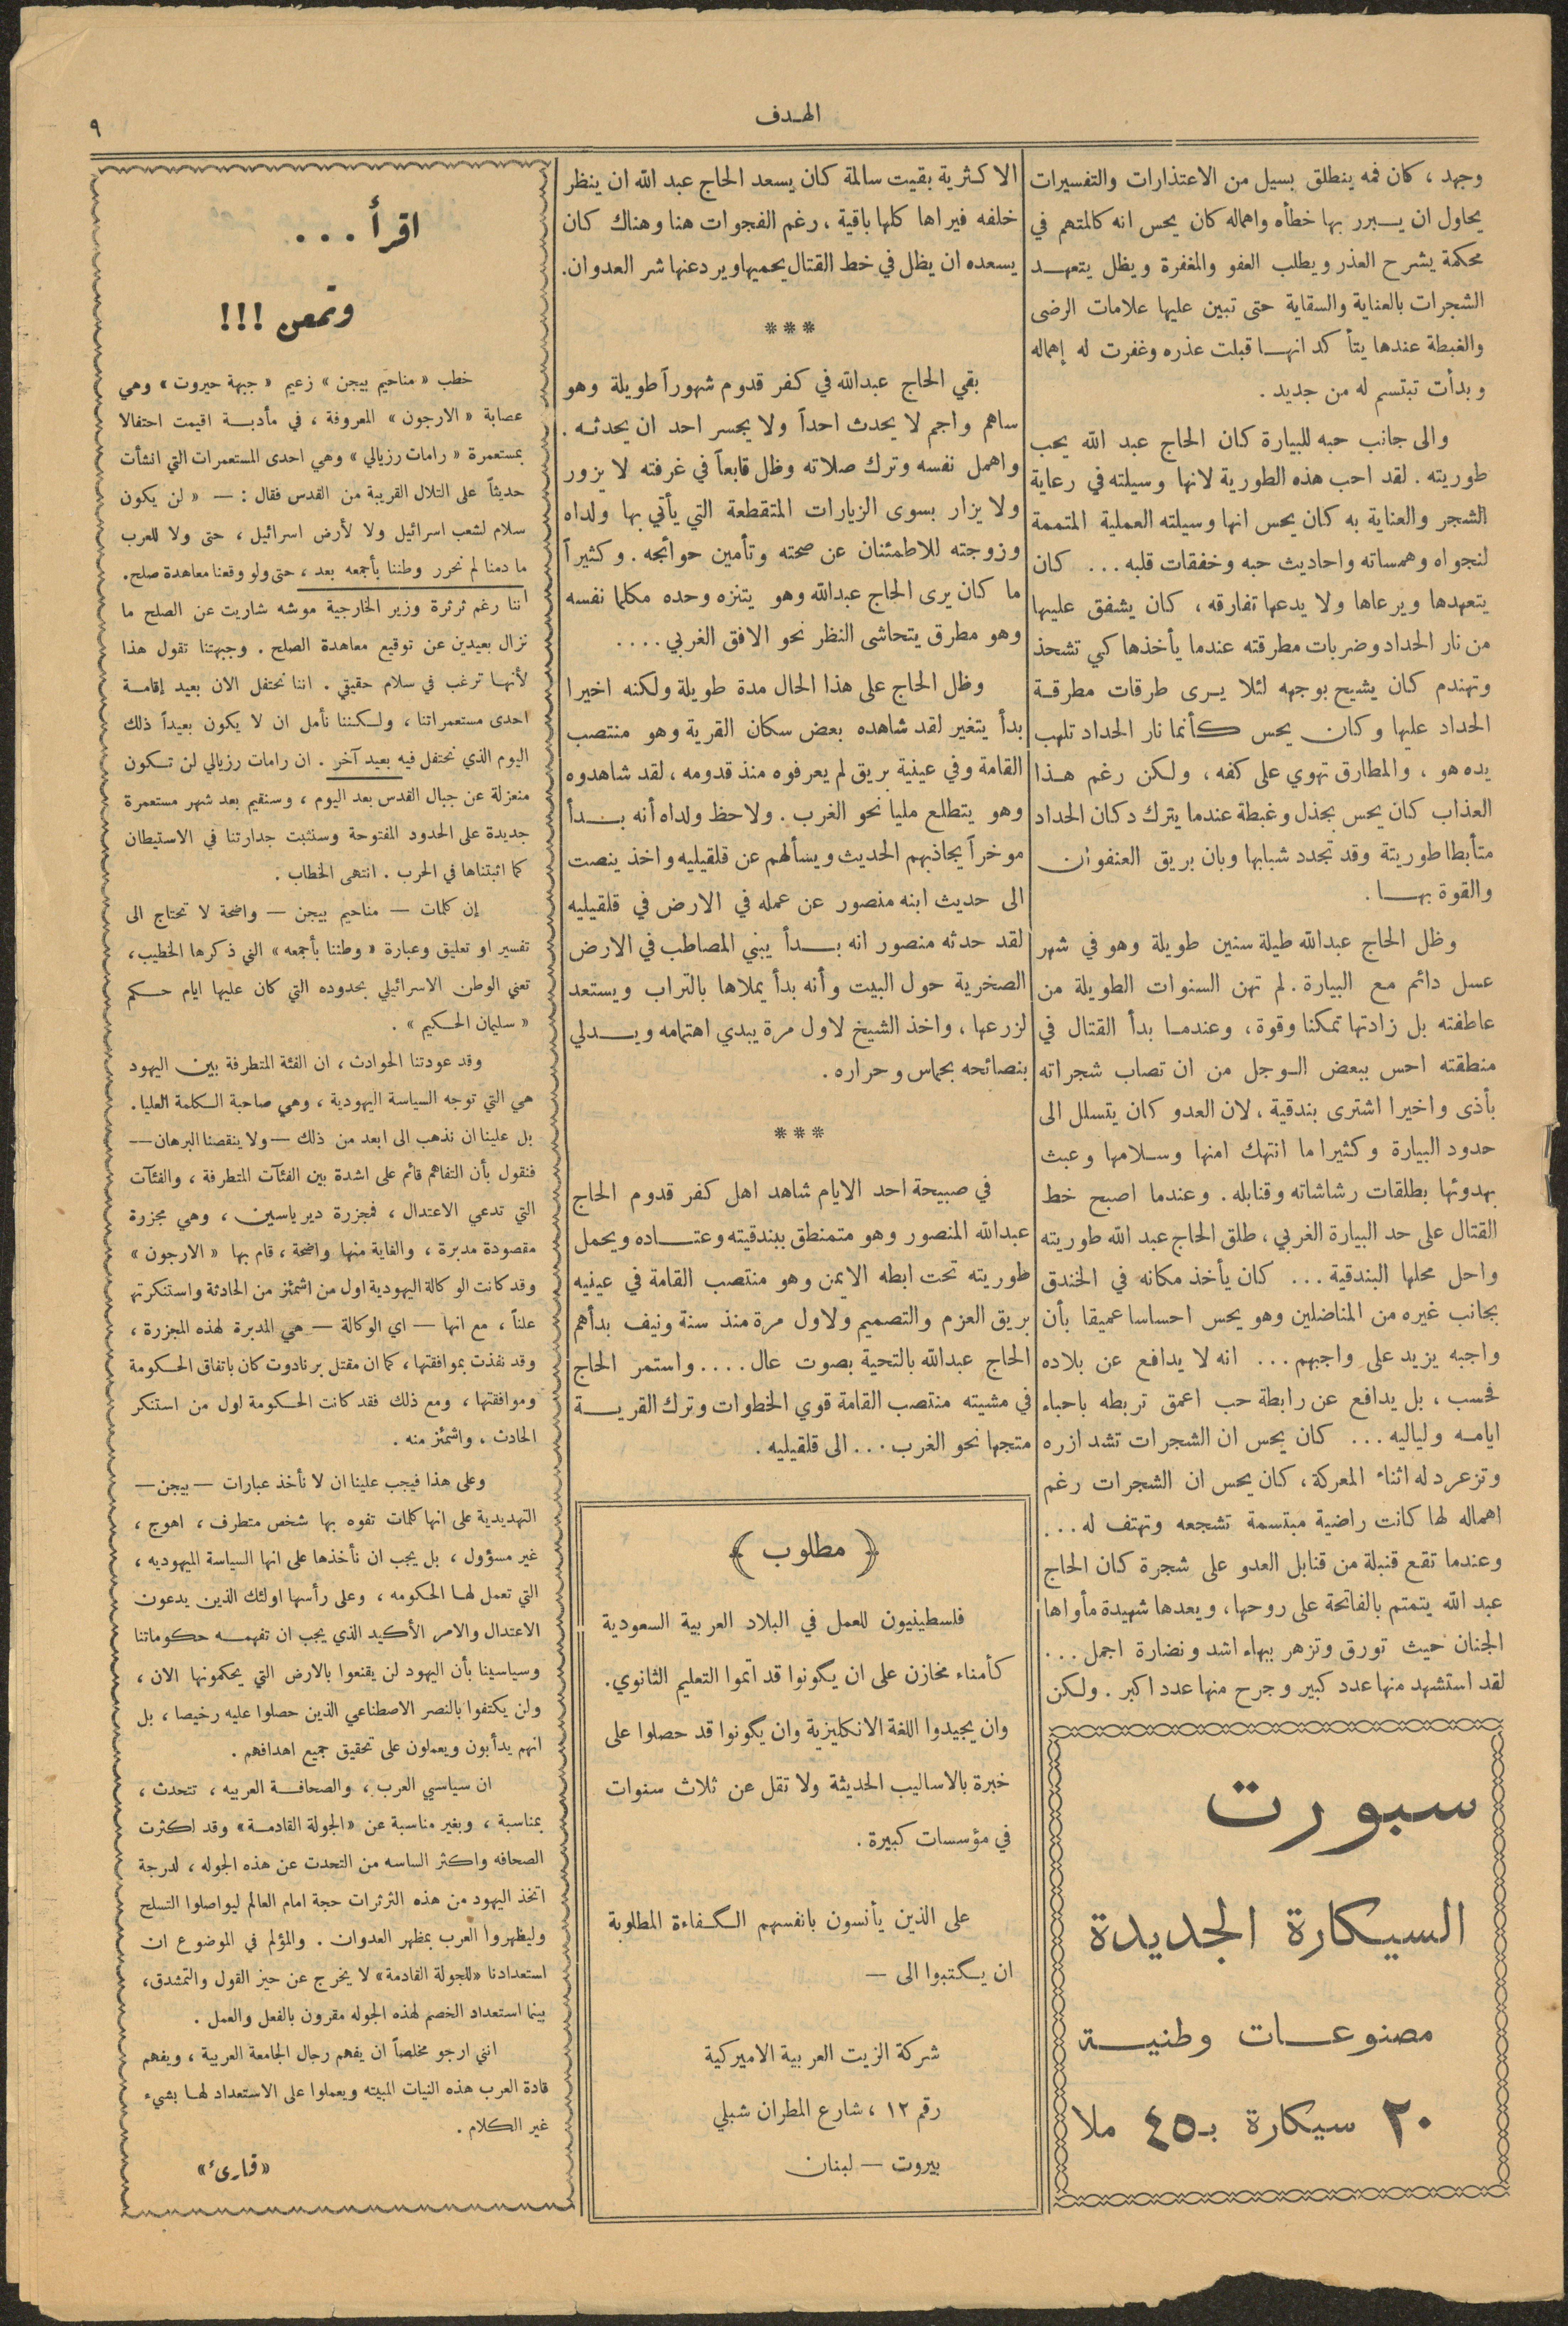 الهدف
٩
وجهد ، كان فمه ينطلق بسيل من الاعتذارات والتفسيرات
يحاول ان يبرر بها خطأه واهماله كان يحس انه كالمتهم في
محكمة يشرح العذر ويطلب العفو والمغفرة ويظل يتعهد
الشجرات بالعناية والسقاية حتى تبين عليها علامات الرضى
والغبطة عندها يتأكد انها قبلت عذره وغفرت له إهماله
وبدأت تبتسم له من جديد .
والى جانب حبه للبيارة كان الحاج عبد الله يحب
طوريته . لقد احب هذه الطورية لانها وسيلته في رعاية
الشجر والعناية به كان يحس انها وسيلته العملية المتممة
لنجواه وهمساته واحاديث حبه وخفقات قلبه ... كان
يتعهدها ويرعاها ولا يدعها تفارقه ، كان يشفق عليها
من نار الحداد وضربات مطرقته عندما يأخذها كي تشحذ
وتهندم كان يشيح بوجهه لئلا يرى طرقات مطرقة
الحداد عليها وكان يحس كأنما نار الحداد تلهب
يده هو ، والمطارق تهوي على كفه ، ولكن رغم هذا
العذاب كان يحس بجذل وغبطة عندما يترك دكان الحداد
متأبطا طوريتة وقد تجدد شبابها وبان بريق العنفوان
والقوة بها .
وظل الحاج عبدالله طيلة سنين طويلة وهو في شهر
عسل دائم مع البيارة . لم تهن السنوات الطويلة من
عاطفته بل زادتها تمكنا وقوة ، وعندما بدأ القتال في
منطقته احس ببعض الوجل من ان تصاب شجراته
بأذى واخيرا اشترى بندقية ، لان العدو كان يتسلل الى
حدود البيارة وكثيرا ما انتهك امنها وسلامها وعبث
بهدوئها بطلقات رشاشاته وقنابله . وعندما اصبح خط
القتال على حد البيارة الغربي ، طلق الحاج عبد الله طوريته
واحل محلها البندقية ... كان يأخذ مكانه في الخندق
بجانب غيره من المناضلين وهو يحس احساسا عميقا بأن
واجبه يزيد على واجبهم ... انه لا يدافع عن بلاده
فحسب ، بل يدافع عن رابطة حب اعمق تربطه باحباء
ايامه ولياليه ... كان يحس ان الشجرات تشد ازره
وتزغرد له اثناء المعركة ، كان يحس ان الشجرات رغم
اهماله لها كانت راضية مبتسمة تشجعه وتهتف له ...
وعندما تقع قنبلة من قنابل العدو على شجرة كان الحاج
عبد الله يتمتم بالفاتحة على روحها ، ويعدها شهيدة مأواها
الجنان حيث تورق وتزهر ببهاء اشد ونضارة اجمل ...
لقد استشهد منها عدد كبير وجرح منها عدد اكبر . ولكن
سبورت
السيكارة الجديدة
مصنوعات وطنية
٢٠ سيكارة بـ٤٥ ملا
الاكثرية بقيت سالمة كان يسعد الحاج عبد الله ان ينظر
خلفه فيراها كلها باقية ، رغم الفجوات هنا وهناك كان
يسعده ان يظل في خط القتال يحميها ويردعنها شر العدوان.
***
بقي الحاج عبدالله في كفر قدوم شهوراً طويلة وهو
ساهم واجم لا يحدث احداً ولا يجسر احد ان يحدثه .
واهمل نفسه وترك صلاته وظل قابعاً في غرفته لا يزور
ولا يزار بسوى الزيارات المتقطعة التي يأتي بها ولداه
وزوجته للاطمئنان عن صحته وتأمين حوائجه . وكثيراً
ما كان يرى الحاج عبدالله وهو يتنزه وحده مكلما نفسه
وهو مطرق يتحاشى النظر نحو الافق الغربي ....
وظل الحاج على هذا الحال مدة طويلة ولكنه اخيرا
بدأ يتغير لقد شاهده بعض سكان القرية وهو منتصب
القامة وفي عينية بريق لم يعرفوه منذ قدومه ، لقد شاهدوه
وهو يتطلع مليا نحو الغرب . ولاحظ ولداه أنه بدأ
موخراً يجاذبهم الحديث ويسألهم عن قلقيليه واخذ ينصت
الى حديث ابنه منصور عن عمله في الارض في قلقيليه
لقد حدثه منصور انه بدأ يبني المصاطب في الارض
الصخرية حول البيت وأنه بدأ يملاها بالتراب ويستعد
لزرعها ، واخذ الشيخ لاول مرة يبدي اهتمامه ويدلي
بنصائحه بحماس وحراره .
***
في صبيحة احد الايام شاهد اهل كفر قدوم الحاج
عبدالله المنصور وهو متمنطق ببندقيته وعتاده ويحمل
طوريته تحت ابطه الايمن وهو منتصب القامة في عينيه
بريق العزم والتصميم ولاول مرة منذ سنة ونيف بدأهم
الحاج عبدالله بالتحية بصوت عال .... واستمر الحاج
في مشيته منتصب القامة قوي الخطوات وترك القرية
متجها نحو الغرب ... الى قلقيليه .
﴿ مطلوب ﴾
فلسطينيون للعمل في البلاد العربية السعودية
كأمناء مخازن على ان يكونوا قد اتموا التعليم الثانوي.
وان يجيدوا اللغة الانكليزية وان يكونوا قد حصلوا على
خبرة بالاساليب الحديثة ولا تقل عن ثلاث سنوات
في مؤسسات كبيرة .
على الذين يأنسون بانفسهم الكفاءة المطلوبة
ان يكتبوا الى —
شركة الزيت العربية الاميركية
رقم ١٢ ، شارع المطران شبلي
بيروت — لبنان
اقرأ ...
وتمعن !!!
خطب « مناحيم بيجن » زعيم « جبهة حيروت » وهي
عصابة « الارجون » المعروفة ، في مأدبة اقيمت احتفالا
بمستعمرة « رامات رزيالي » وهي احدى المستعمرات التي انشأت
حديثاً على التلال القريبة من القدس فقال : — « لن يكون
سلام لشعب اسرائيل ولا لأرض اسرائيل ، حتى ولا للعرب
ما دمنا لم نحرر وطننا بأجمعه بعد ، حتى ولو وقعنا معاهدة صلح.
اننا رغم ثرثرة وزير الخارجية موشه شاريت عن الصلح ما
نزال بعيدين عن توقيع معاهدة الصلح . وجبهتنا تقول هذا
لأنها ترغب في سلام حقيقي . اننا نحتفل الان بعيد إقامة
احدى مستعمراتنا ، ولكننا نأمل ان لا يكون بعيداً ذلك
اليوم الذي نحتفل فيه بعيد آخر . ان رامات رزيالي لن تكون
منعزلة عن جبال القدس بعد اليوم ، وسنقيم بعد شهر مستعمرة
جديدة على الحدود المفتوحة وسنثبت جدارتنا في الاستيطان
كما اثبتناها في الحرب . انتهى الخطاب .
إن كلمات — مناحيم بيجن — واضحة لا تحتاج الى
تفسير او تعليق وعبارة « وطننا بأجمعه » التي ذكرها الخطيب ،
تعني الوطن الاسرائيلي بحدوده التي كان عليها ايام حكم
« سليمان الحكيم » .
وقد عودتنا الحوادث ، ان الفئة المتطرفة بين اليهود
هي التي توجه السياسة اليهودية ، وهي صاحبة الكلمة العليا.
بل علينا ان نذهب الى ابعد من ذلك — ولا ينقصنا البرهان —
فنقول بأن التفاهم قائم على اشدة بين الفئآت المتطرفة ، والفئآت
التي تدعي الاعتدال ، فمجزرة دير ياسين ، وهي مجزرة
مقصودة مدبرة ، والغاية منها واضحة ، قام بها « الارجون »
وقد كانت الوكالة اليهودية اول من اشمئز من الحادثة واستنكرته
علناً ، مع انها — اي الوكالة — هي المدبرة لهذه المجزرة ،
وقد نفذت بموافقتها ، كما ان مقتل برنادوت كان باتفاق الحكومة
وموافقتها ، ومع ذلك فقد كانت الحكومة اول من استنكر
الحادث ، واشمئز منه .
وعلى هذا فيجب علينا ان لا نأخذ عبارات — بيجن —
التهديدية على انها كلمات تفوه بها شخص متطرف ، اهوج ،
غير مسؤول ، بل يجب ان نأخذها على انها السياسة اليهوديه ،
التي تعمل لها الحكومه ، وعلى رأسها اولئك الذين يدعون
الاعتدال والامر الأكيد الذي يجب ان تفهمه حكوماتنا
وسياسينا بأن اليهود لن يقنعوا بالارض التي يحكمونها الان ،
ولن يكتفوا بالنصر الاصطناعي الذين حصلوا عليه رخيصا ، بل
انهم يدأبون ويعملون على تحقيق جميع اهدافهم .
ان سياسيي العرب ، والصحافة العربيه ، تتحدث ،
بمناسبة ، وبغير مناسبة عن «الجولة القادمة» وقد اكثرت
الصحافه واكثر الساسه من التحدت عن هذه الجوله ، لدرجة
اتخذ اليهود من هذه الثرثرات حجة امام العالم ليواصلوا التسلح
وليظهروا العرب بمظهر العدوان . والمؤلم في الموضوع ان
استعدادنا «للجولة القادمة» لا يخرج عن حيز القول والتمشدق ،
بينما استعداد الخصم لهذه الجوله مقرون بالفعل والعمل .
انني ارجو مخلصاً ان يفهم رجال الجامعة العربية ، ويفهم
قادة العرب هذه النيات المبيته ويعملوا على الاستعداد لها بشيء
غير الكلام .
«قارىء»